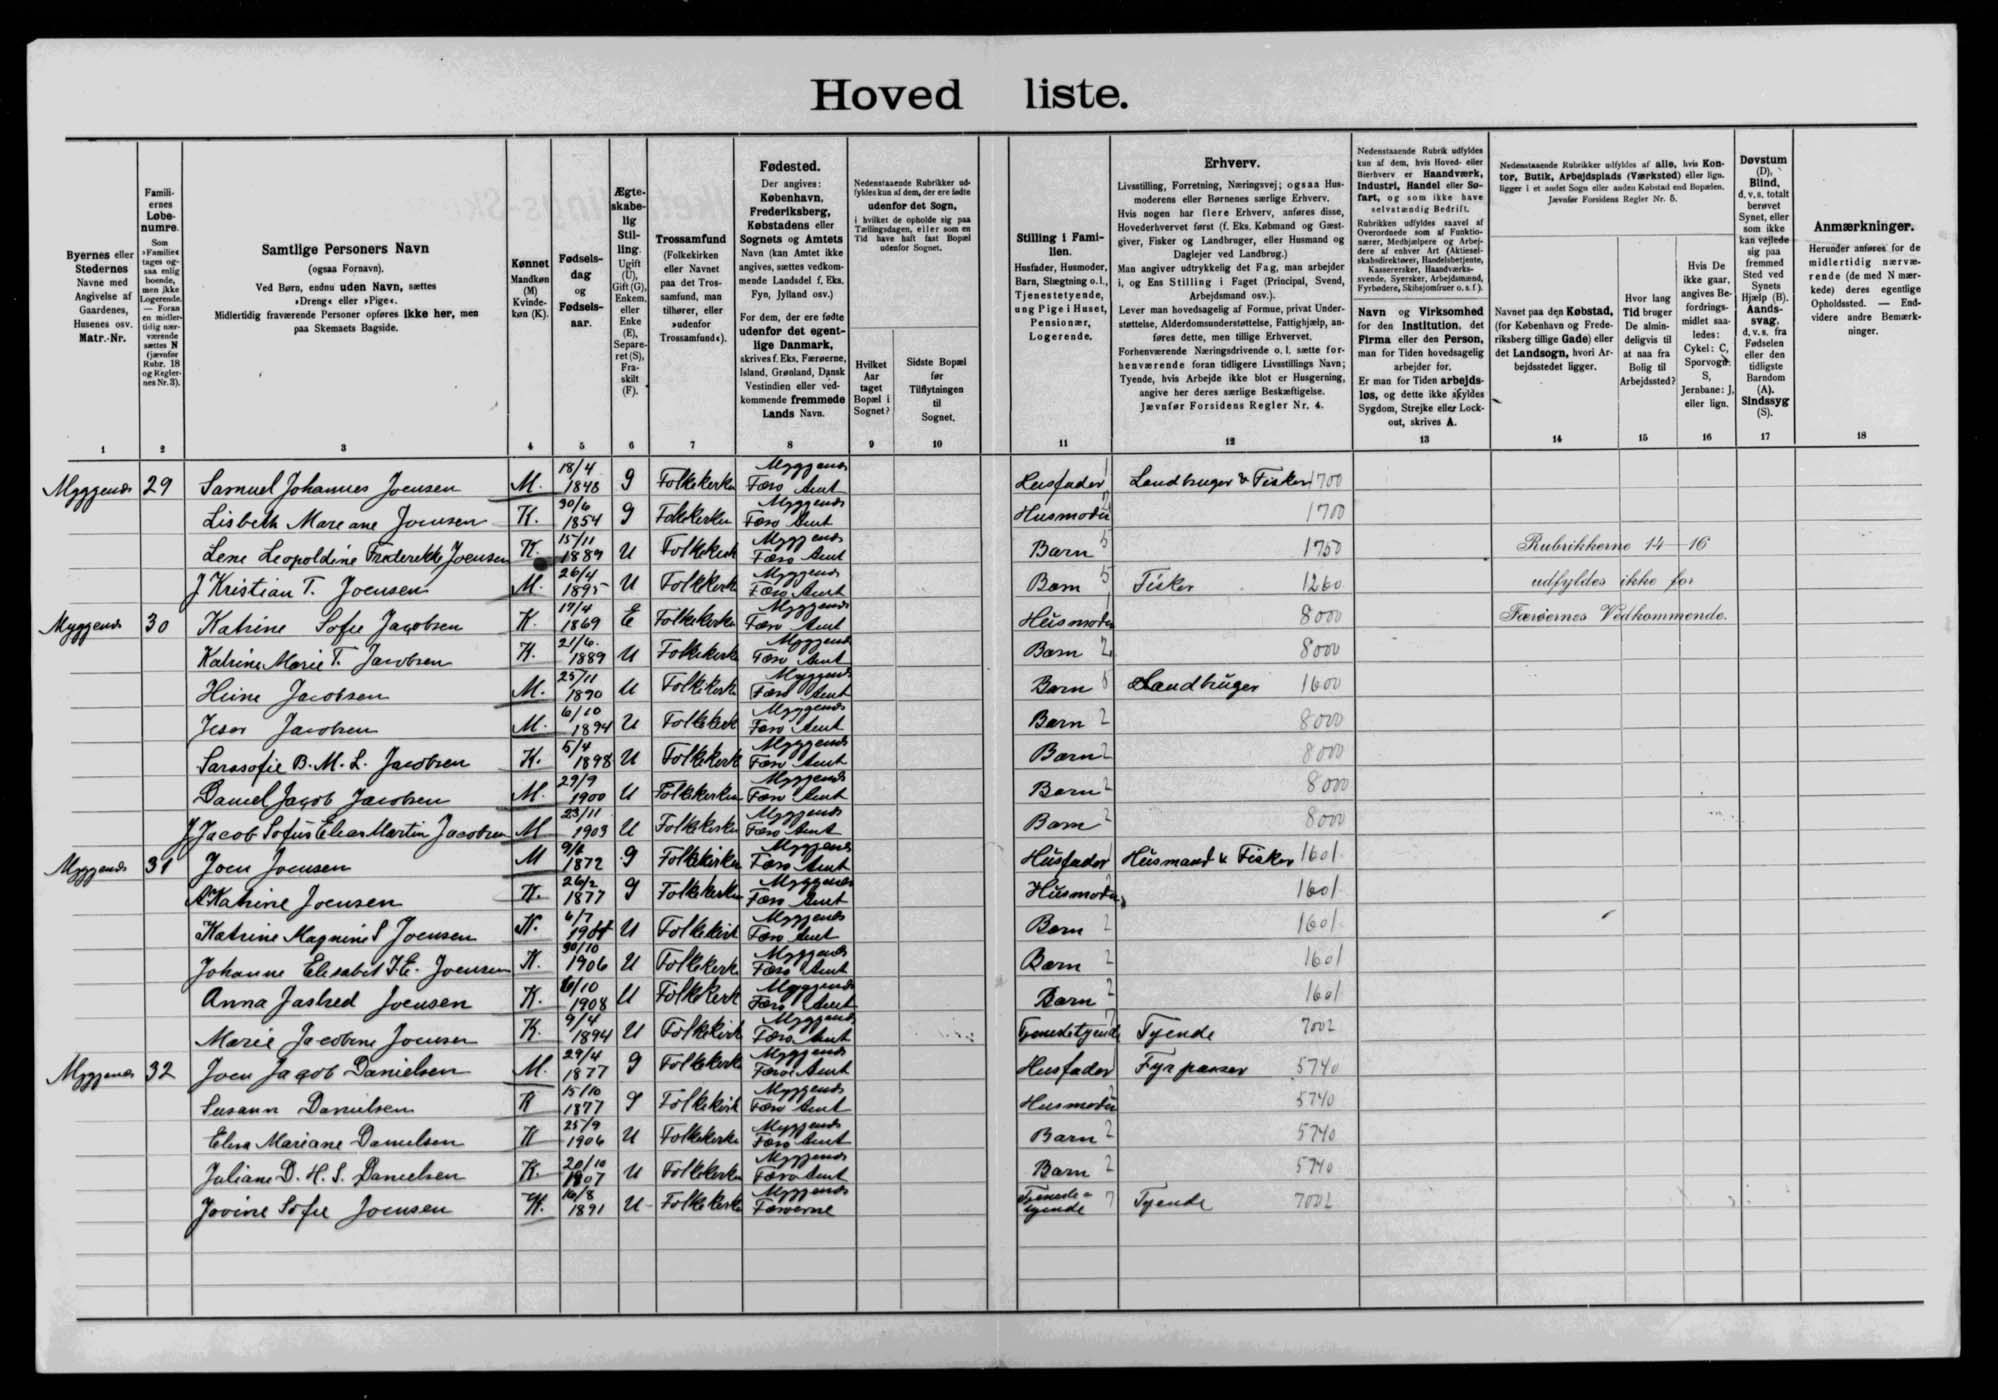 Hoved liste.
Byernes eller Stedernes Navne med Angivelse af Gaardenes, Husenes osv. Matr.-Nr.
Famili- ernes Løbe- numre. Som »Familie« tages og- saa enlig boende, men ikke Logerende. — Foran en midler- tidig nær- værende sættes N (jævnfør Rubr. 18 og Regler- nes Nr. 3).
Samtlige Personers Navn
(ogsaa Fornavn).
Ved Børn, endnu uden Navn, sættes
»Dreng« eller »Pige«.
Midlertidig fraværende Personer opføres ikke her, men
paa Skemaets Bagside.
Kønnet Mandkøn (M) Kvinde- køn (K).
Fødsels- dag og Fødsels- aar.
Ægte- skabe- lig Stil- ling. Ugift (U), Gift (G), Enkem. eller Enke (E), Separe- ret (S), Fra- skilt (F).
Trossamfund (Folkekirken eller Navnet paa det Tros- samfund, man tilhører, eller »udenfor Trossamfund«).
Fødested.
Der angives: København, Frederiksberg, Købstadens eller Sognets og Amtets Navn (kan Amtet ikke angives, sættes vedkom- mende Landsdel f. Eks. Fyn, Jylland osv.)
For dem, der ere fødte udenfor det egent- lige Danmark, skrives f. Eks. Færøerne, Island, Grønland, Dansk Vestindien eller ved- kommende fremmede Lands Navn.
Nedenstaaende Rubrikker ud- fyldes kun af dem, der ere fødte udenfor det Sogn, i hvilket de opholde sig paa Tællingsdagen, eller som en Tid have haft fast Bopæl udenfor Sognet.
Hvilket Aar taget Bopæl i Sognet?
Sidste Bopæl før Tilflytningen til Sognet.
Stilling i Fami- lien. Husfader, Husmoder, Barn, Slægtning o. l., Tjenestetyende, ung Pige i Huset, Pensionær, Logerende.
Erhverv.
Livsstilling, Forretning, Næringsvej; ogsaa Hus- moderens eller Børnenes særlige Erhverv.
Hvis nogen har flere Erhverv, anføres disse, Hovederhvervet først (f. Eks. Købmand og Gæst- giver, Fisker og Landbruger, eller Husmand og Daglejer ved Landbrug.)
Man angiver udtrykkelig det Fag, man arbejder i, og Ens Stilling i Faget (Principal, Svend, Arbejdsmand osv.).
Lever man hovedsagelig af Formue, privat Under- støttelse, Alderdomsunderstøttelse, Fattighjælp, an- føres dette, men tillige Erhvervet.
Forhenværende Næringsdrivende o. l. sætte for- henværende foran tidligere Livsstillings Navn; Tyende, hvis Arbejde ikke blot er Husgerning, angive her deres særlige Beskæftigelse.
Jævnfør Forsidens Regler Nr. 4.
Nedenstaaende Rubrik udfyldes kun af dem, hvis Hoved- eller Bierhverv er Haandværk, Industri, Handel eller Sø- fart, og som ikke have selvstændig Bedrift.
Rubrikken udfyldes saavel af Overordnede som af Funktio- nærer, Medhjælpere og Arbej- dere af enhver Art (Aktiesel- skabsdirektører, Handelsbetjente, Kassererskær, Haandværks- svende, Syersker, Arbejdsmænd, Fyrbødere, Skibsjomfruer o. s. f.).
Navn og Virksomhed for den Institution, det Firma eller den Person, man for Tiden hovedsagelig arbejder for.
Er man for Tiden arbejds- løs, og dette ikke skyldes Sygdom, Strejke eller Lock- out, skrives A.
Nedenstaaende Rubrikker udfyldes af alle, hvis Kon- tor, Butik, Arbejdsplads (Værksted) eller lign. ligger i et andet Sogn eller anden Købstad end Bopælen. Jævnfør Forsidens Regler Nr. 5.
Navnet paa den Købstad, (for København og Frede- riksberg tillige Gade) eller det Landsogn, hvori Ar- bejdsstedet ligger.
Hvor lang Tid bruger De almin- deligvis til at naa fra Bolig til Arbejdssted?
Hvis De ikke gaar, angives Be- fordrings- midlet saa- ledes: Cykel: C, Sporvogn: S, Jernbane: J, eller lign.
Døvstum (D), Blind, d. v. s. totalt berøvet Synet, eller som ikke kan vejlede sig paa fremmed Sted ved Synets Hjælp (B). Aands- svag, d. v. s. fra Fødselen eller den tidligste Barndom (A). Sindssyg (S).
Anmærkninger.
Herunder anføres for de midlertidig nærvæ- rende (de med N mær- kede) deres egentlige Opholdssted. — End- videre andre Bemærk- ninger.
1 2 3 4 5 6 7 8 9 10 11 12 13 14 15 16 17 18
Myggenæs 29 Samuel Johannes Joensen M. 18/4 1848 G Folkekirken Myggenæs Færø Amt Husfader 1 Landbruger & Fisker 1700
Lisbeth Mariane Joensen K. 30/6 1854 G Folkekirken Myggenæs Færø Amt Husmoder 2 1700
Lene Leopoldine Frederekke Joensen K. 15/11 1889 U Folkekirk Myggenæs Færø Amt Barn 5 1750 Rubrikkerne 14—16
J Kristian T. Joensen M. 26/4 1895 U Folkekirk Myggenæs Færø Amt Barn 5 Fisker 1260 udfyldes ikke for
Myggenæs 30 Katrine Sofie Jacobsen K. 17/4 1869 E Folkekirken Myggenæs Færø Amt Husmoder 1 8000 Færøernes Vedkommende.
Katrine Marie T. Jacobsen K. 21/6 1889 U Folkekirk Myggenæs Færø Amt Barn 2 8000
Heine Jacobsen M. 25/11 1890 U Folkekirk Myggenæs Færø Amt Barn 5 Landbruger 1600
Jacobsen M. 6/10 1894 U Folkekirk Myggenæs Færø Amt Barn 2 8000
Sarasofie B. M. L. Jacobsen K. 5/4 1898 U Folkekirk Myggenæs Færø Amt Barn 2 8000
Daniel Jacob Jacobsen M. 29/9 1900 U Folkekirken Myggenæs Færø Amt Barn 2 8000
J Jacob Sofus Elias Martin Jacobsen M 23/11 1903 U Folkekirken Myggenæs Færø Amt Barn 2 8000
Myggenæs 31 Joen Joensen M 1872 G Folkekirken Myggenæs Færø Amt Husfader 1 Husmand & Fisker 1601
A Katrine Joensen K. 26/2 1877 G Folkekirken Myggenæs Færø Amt Husmoder 2 1601
Katrine Magnine S Joensen K. 6/7 U Folkekirk Myggenæs Færø Amt Barn 2 1601
Johanne Elisabet J. E. Joensen K. 30/10 1906 U Folkekirk Myggenæs Færø Amt Barn 2 1601
Anna Jastred Joensen K. 6/10 1908 U Folkekirk Myggenæs Færø Amt Barn 2 1601
Marie Jacobine Joensen K. 9/4 1894 U Folkekirk Myggenæs Færø Amt Tjenestetyende 7 Tyende 7002
Myggenæs 32 Joen Jacob Danielsen M. 29/4 1877 G Folkekirk Myggenæs Færø Amt Husfader 1 Fyrpasser 5740
Susann Danielsen K 15/10 1877 G Folkekirk Myggenæs Færø Amt Husmoder 2 5740
Elina Mariane Danielsen K 25/9 1906 U Folkekirke Myggenæs Færø Amt Barn 2 5740
Juliane D. H. S. Danielsen K. 20/10 1907 U Folkekirken Myggenæs Færø Amt Barn 2 5740
Jovine Sofie Joensen K. 16/8 1891 U Folkekirke Myggenæs Færøerne Tjeneste- tyende 7 Tyende 7002